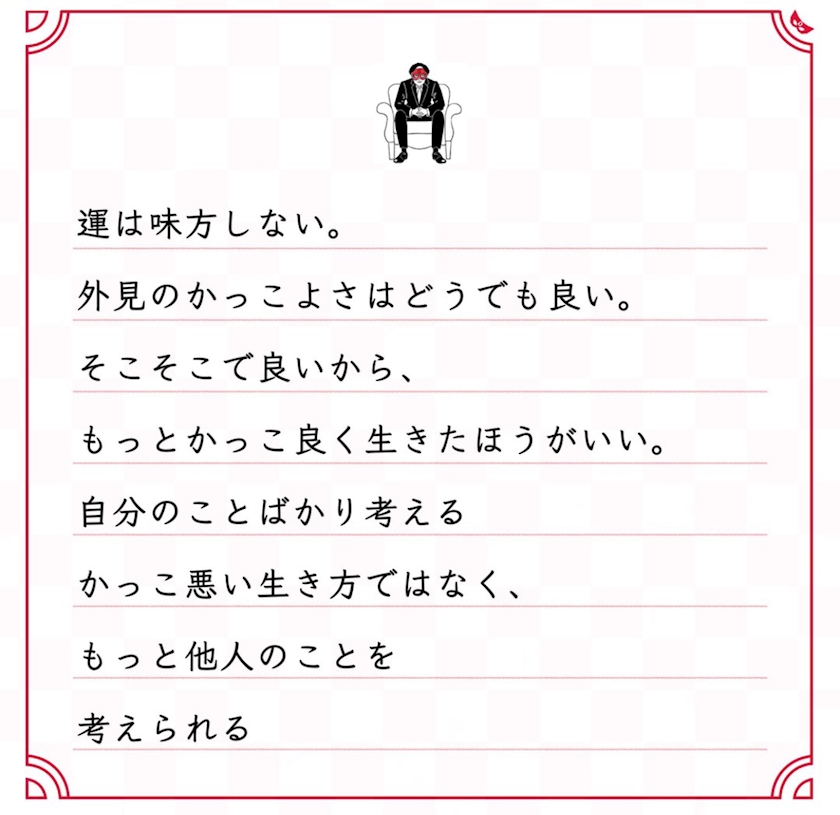 運は味方しない。
外見のかっこよさはどうでも良い。
そこそこで良いから、
もっとかっこ良く生きたほうがいい。
自分のことばかり考える
かっこ悪い生き方ではなく、
もっと他人のことを
考えられる